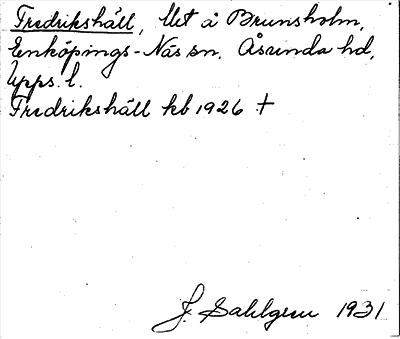 Fredrikshäll, lht å Brunsholm,
Enköpings-Näs sn. Åsunda hd,
Upps. l.
Fredrikshäll kb 1926 †
J. Sahlgren 1931